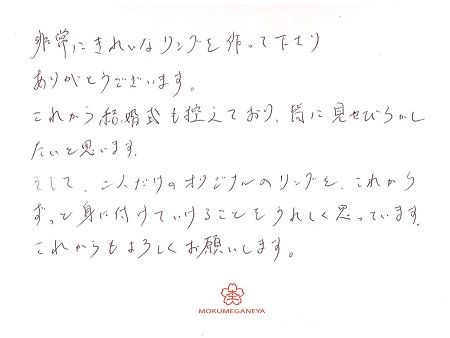 非常にきれいなリングを作って下さり
ありがとうございます。
これから結婚式も控えており、皆に見せびらかし
たいと思います。
そして、二人だけのオリジナルのリングを、これから
ずっと身に付けていけることをうれしく思っています。
これからもよろしくお願いします。
MOKUMEGANEYA